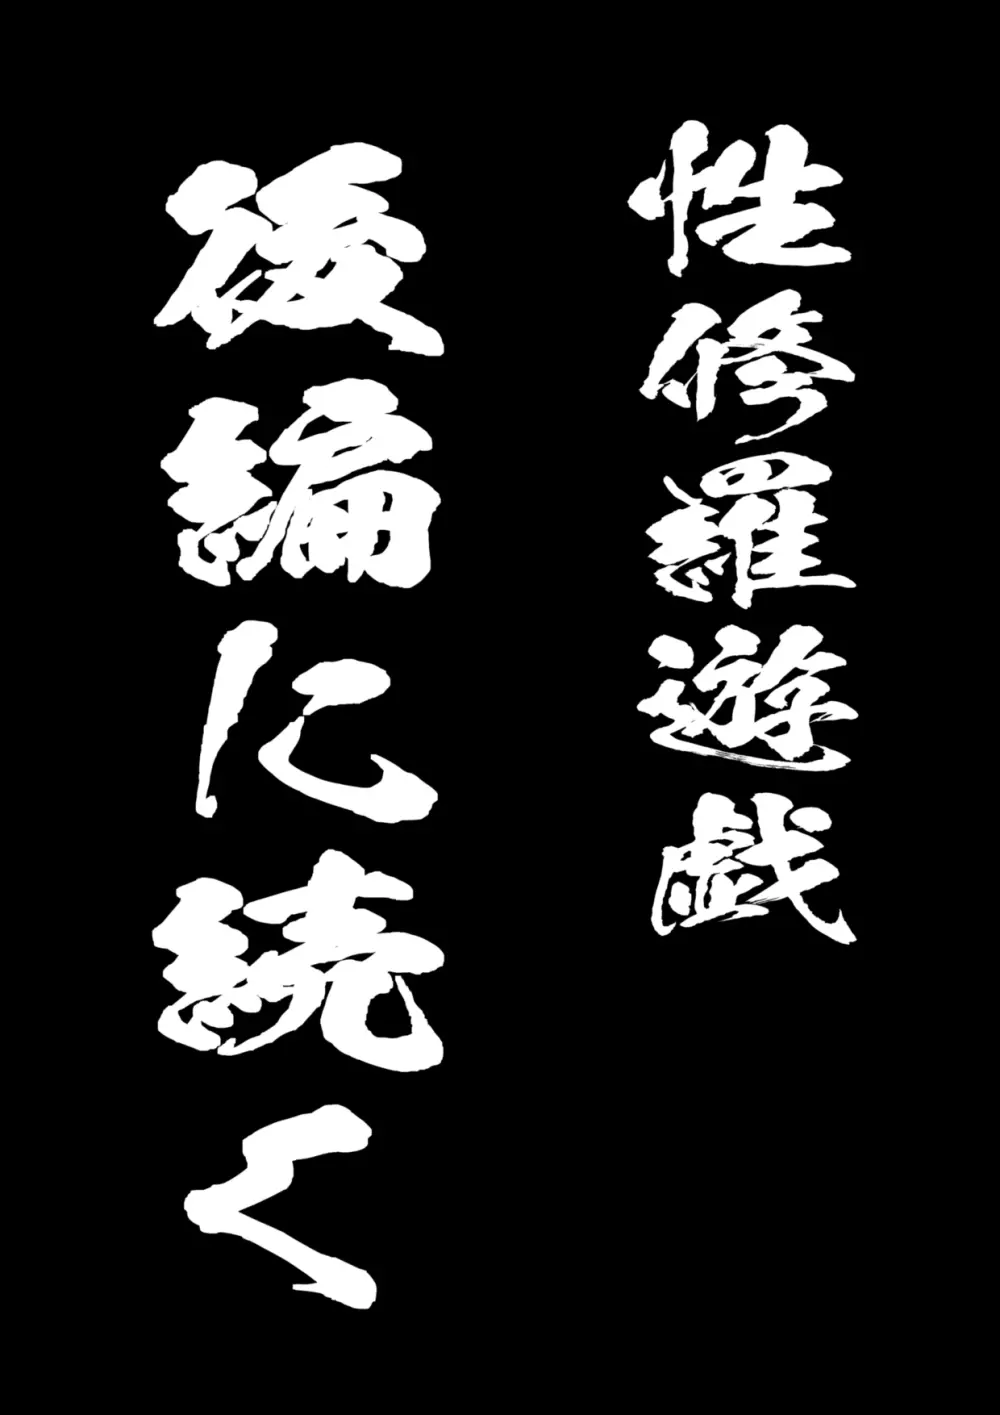 性修羅遊戯
後編に続く